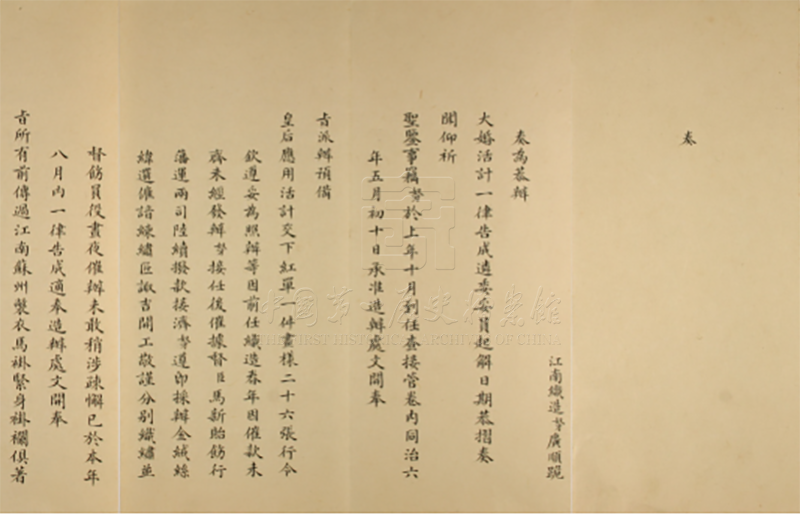 奏
江南織造奴才廣順跪
奏為恭辦
大婚活計一律告成遴委妥員起解日期恭摺奏
聞仰祈
聖鑒事竊奴才於上年十月到任查接管卷內同治六
年五月初十日承准造辦處文開奉
旨派辦預備
皇后應用活計交下紅單一件畫樣二十六張行令
欽遵妥為照辦等因前任織造春年因催款未
齊未經發辦奴才接任後催據督臣馬新貽飭行
藩運兩司陸續撥款接濟奴才遵即採辦金絨絲
緯選催諳練繡匠諏吉開工敬謹分別織繡並
督飭員役晝夜催辦未敢稍涉疎懈已於本年
八月內一律告成適奉造辦處文開奉
旨所有前傳過江南蘇州氅衣馬褂緊身褂襴俱著
中國第一歷史檔案館
THE FIRST HISTORICAL ARCHIVES OF CHINA